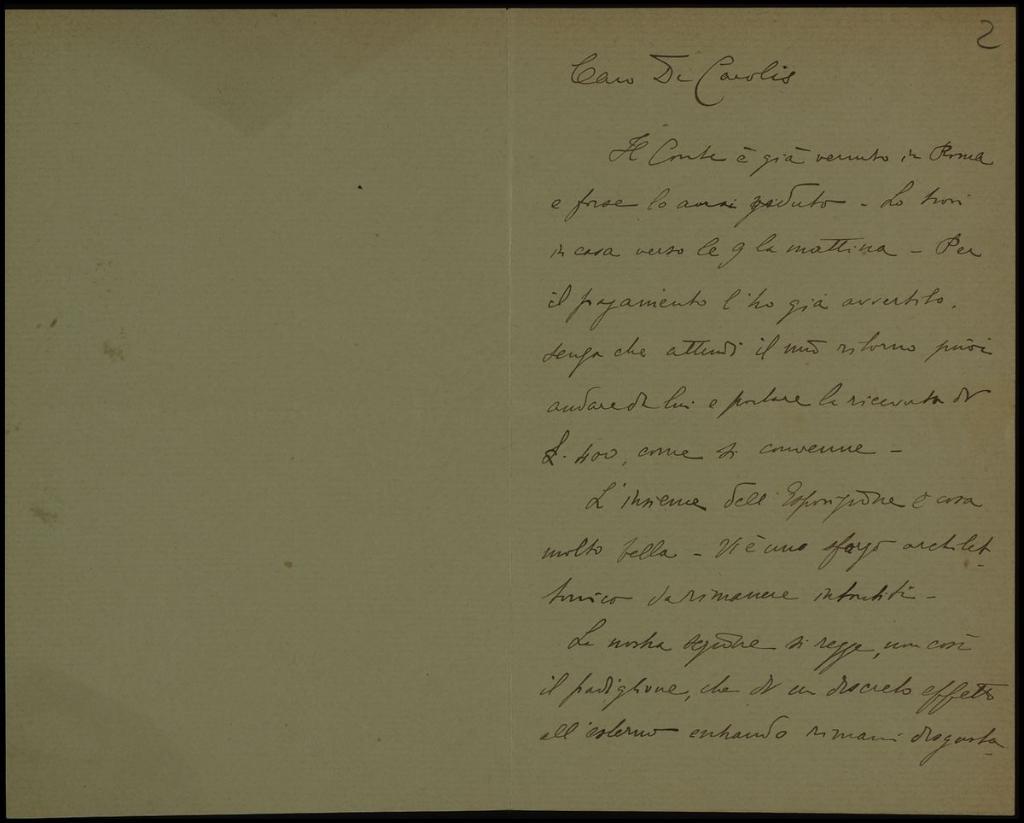 2
Caro De Carolis
Il Conte è già venuto in Roma
e forse lo avrai veduto - Lo trovi
in casa verso le 9 la mattina - Per
il pagamento l'ho già avvertito.
senza che attendi il mio ritorno puoi
andare da lui e portare la ricevuta di
£. 400, come si convenne -
L'insieme dell'Esposizione è cosa
molto bella - Vi è uno sfarzo architet-
tonico da rimanere intontiti -
La nostra sezione si regge, non così
il padiglione, che di un discreto effetto
all'esterno entrando rimani disgusta-